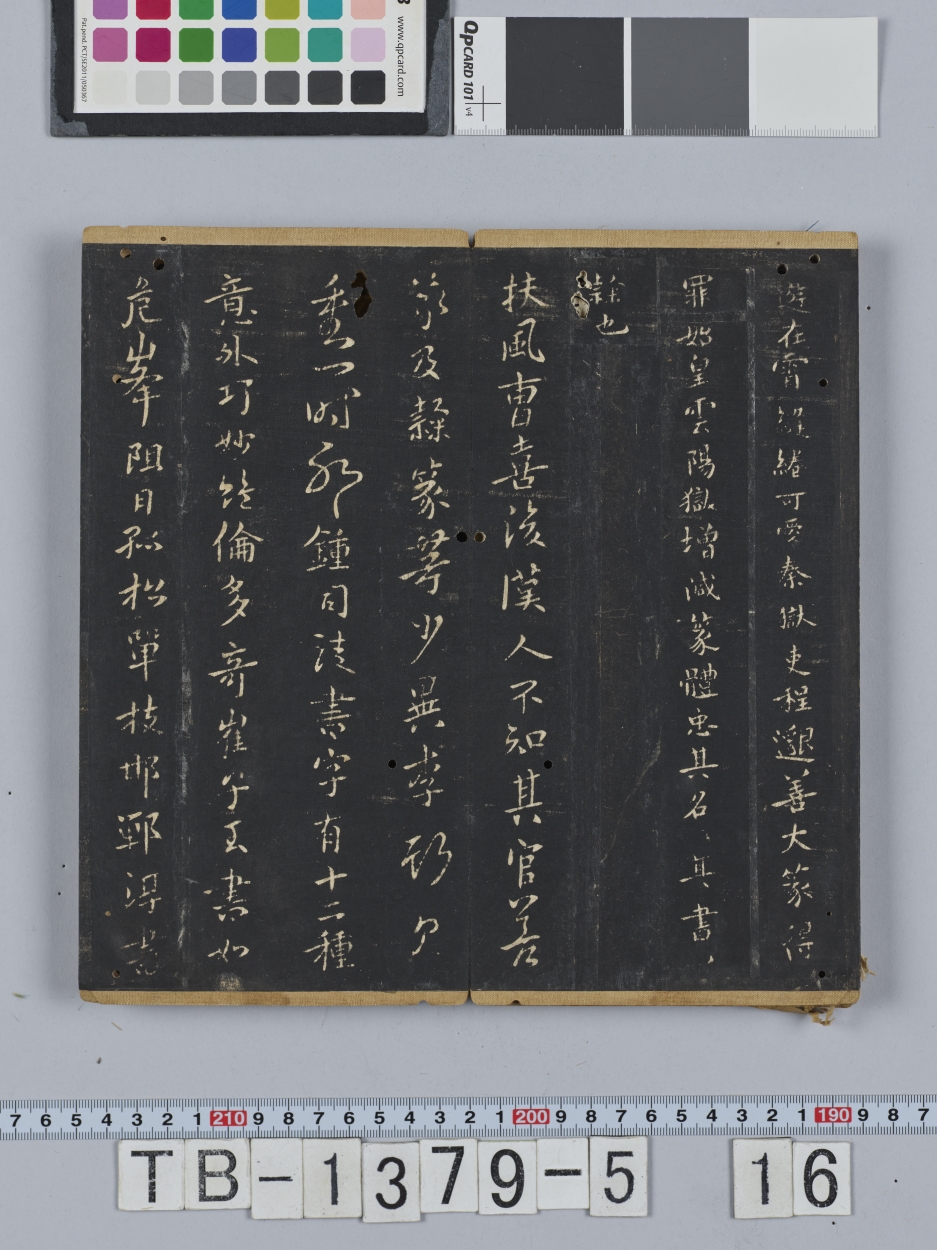 www.qpcard.com
QPCARD 101 v4
遊在霄縫綣可愛秦獄吏程邈善大篆得
罪始皇雲陽獄增減篆體忠其名、其書、
隸也
扶風曹喜後漢人不知其官善
篆及隸篆等少異李斯見
一時鍾司徒書字有十二種
意外巧妙絕倫多奇崔子玉書如
危峯阻日孤松單枝邯鄲淳書
7 6 5 4 3 2 1 210 9 8 7 6 5 4 3 2 1 200 9 8 7 6 5 4 3 2 1 190 9 8 7
TB-1379-5 16